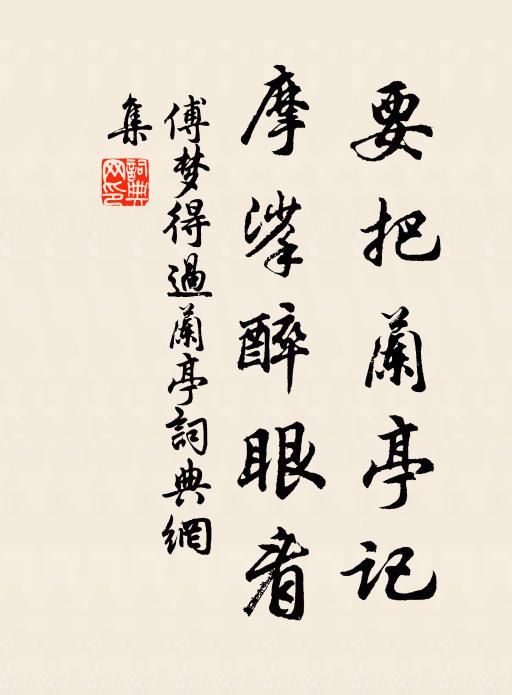 要把蘭亭記
摩挲醉眼看
傅梦得過蘭亭詞典網
集
詞典網印